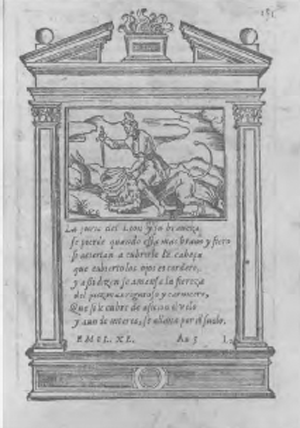 La furia del Leon y su braveza,
se pierde quando esta mas bravo y fiero
si aciertan a cubrirle la cabeça
que cubiertos los ojos es cordero,
y assi dizen se amansa la fiereza
del juez mas riguroso y carnicero,
Que si le cubre de aficion el velo
y aun de interes, se allana por el suelo.
EMBL. XL.